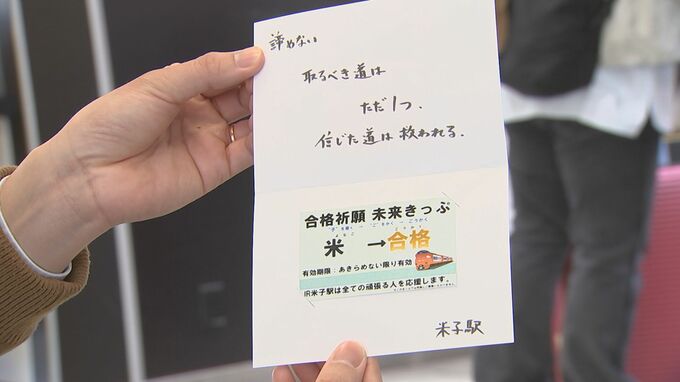 諦めない
取るべき道は
ただ1つ、
信じた道は救われる。
合格祈願 未来きっぷ
米 → 合格
よなご
ごうかく
有効期限：あきらめない限り有効
JR米子駅は全ての頑張る人を応援します。
米子駅